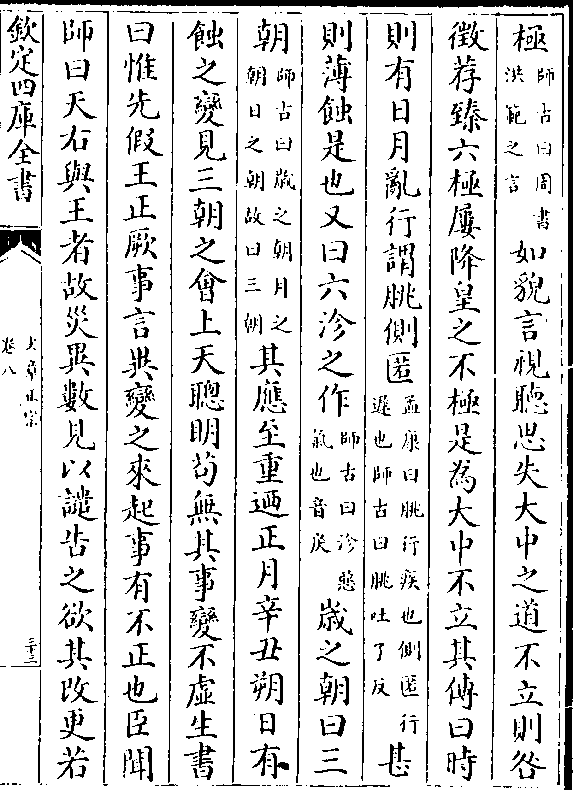 極師古曰周書洪範之言如貌言視聽思失大中之道不立則咎
徵荐臻六極屢降皇之不極是為大中不立其傳曰時
則有日月亂行謂朓側匿孟康曰朓行疾也側匿行遲也師古曰朓吐了反甚
則薄蝕是也又曰六沴之作師古曰沴惡氣也音戾歲之朝曰三
朝師古曰歲之朝月之朝日之朝故曰三朝其應至重迺正月辛丑朔日有
蝕之變見三朝之會上天聰明茍無其事變不虛生書
曰惟先假王正厥事言異變之來起事有不正也臣聞
師曰天右與王者故災異數見以譴告之欲其改更若
欽定四庫全書
文章正宗
卷八
三十三